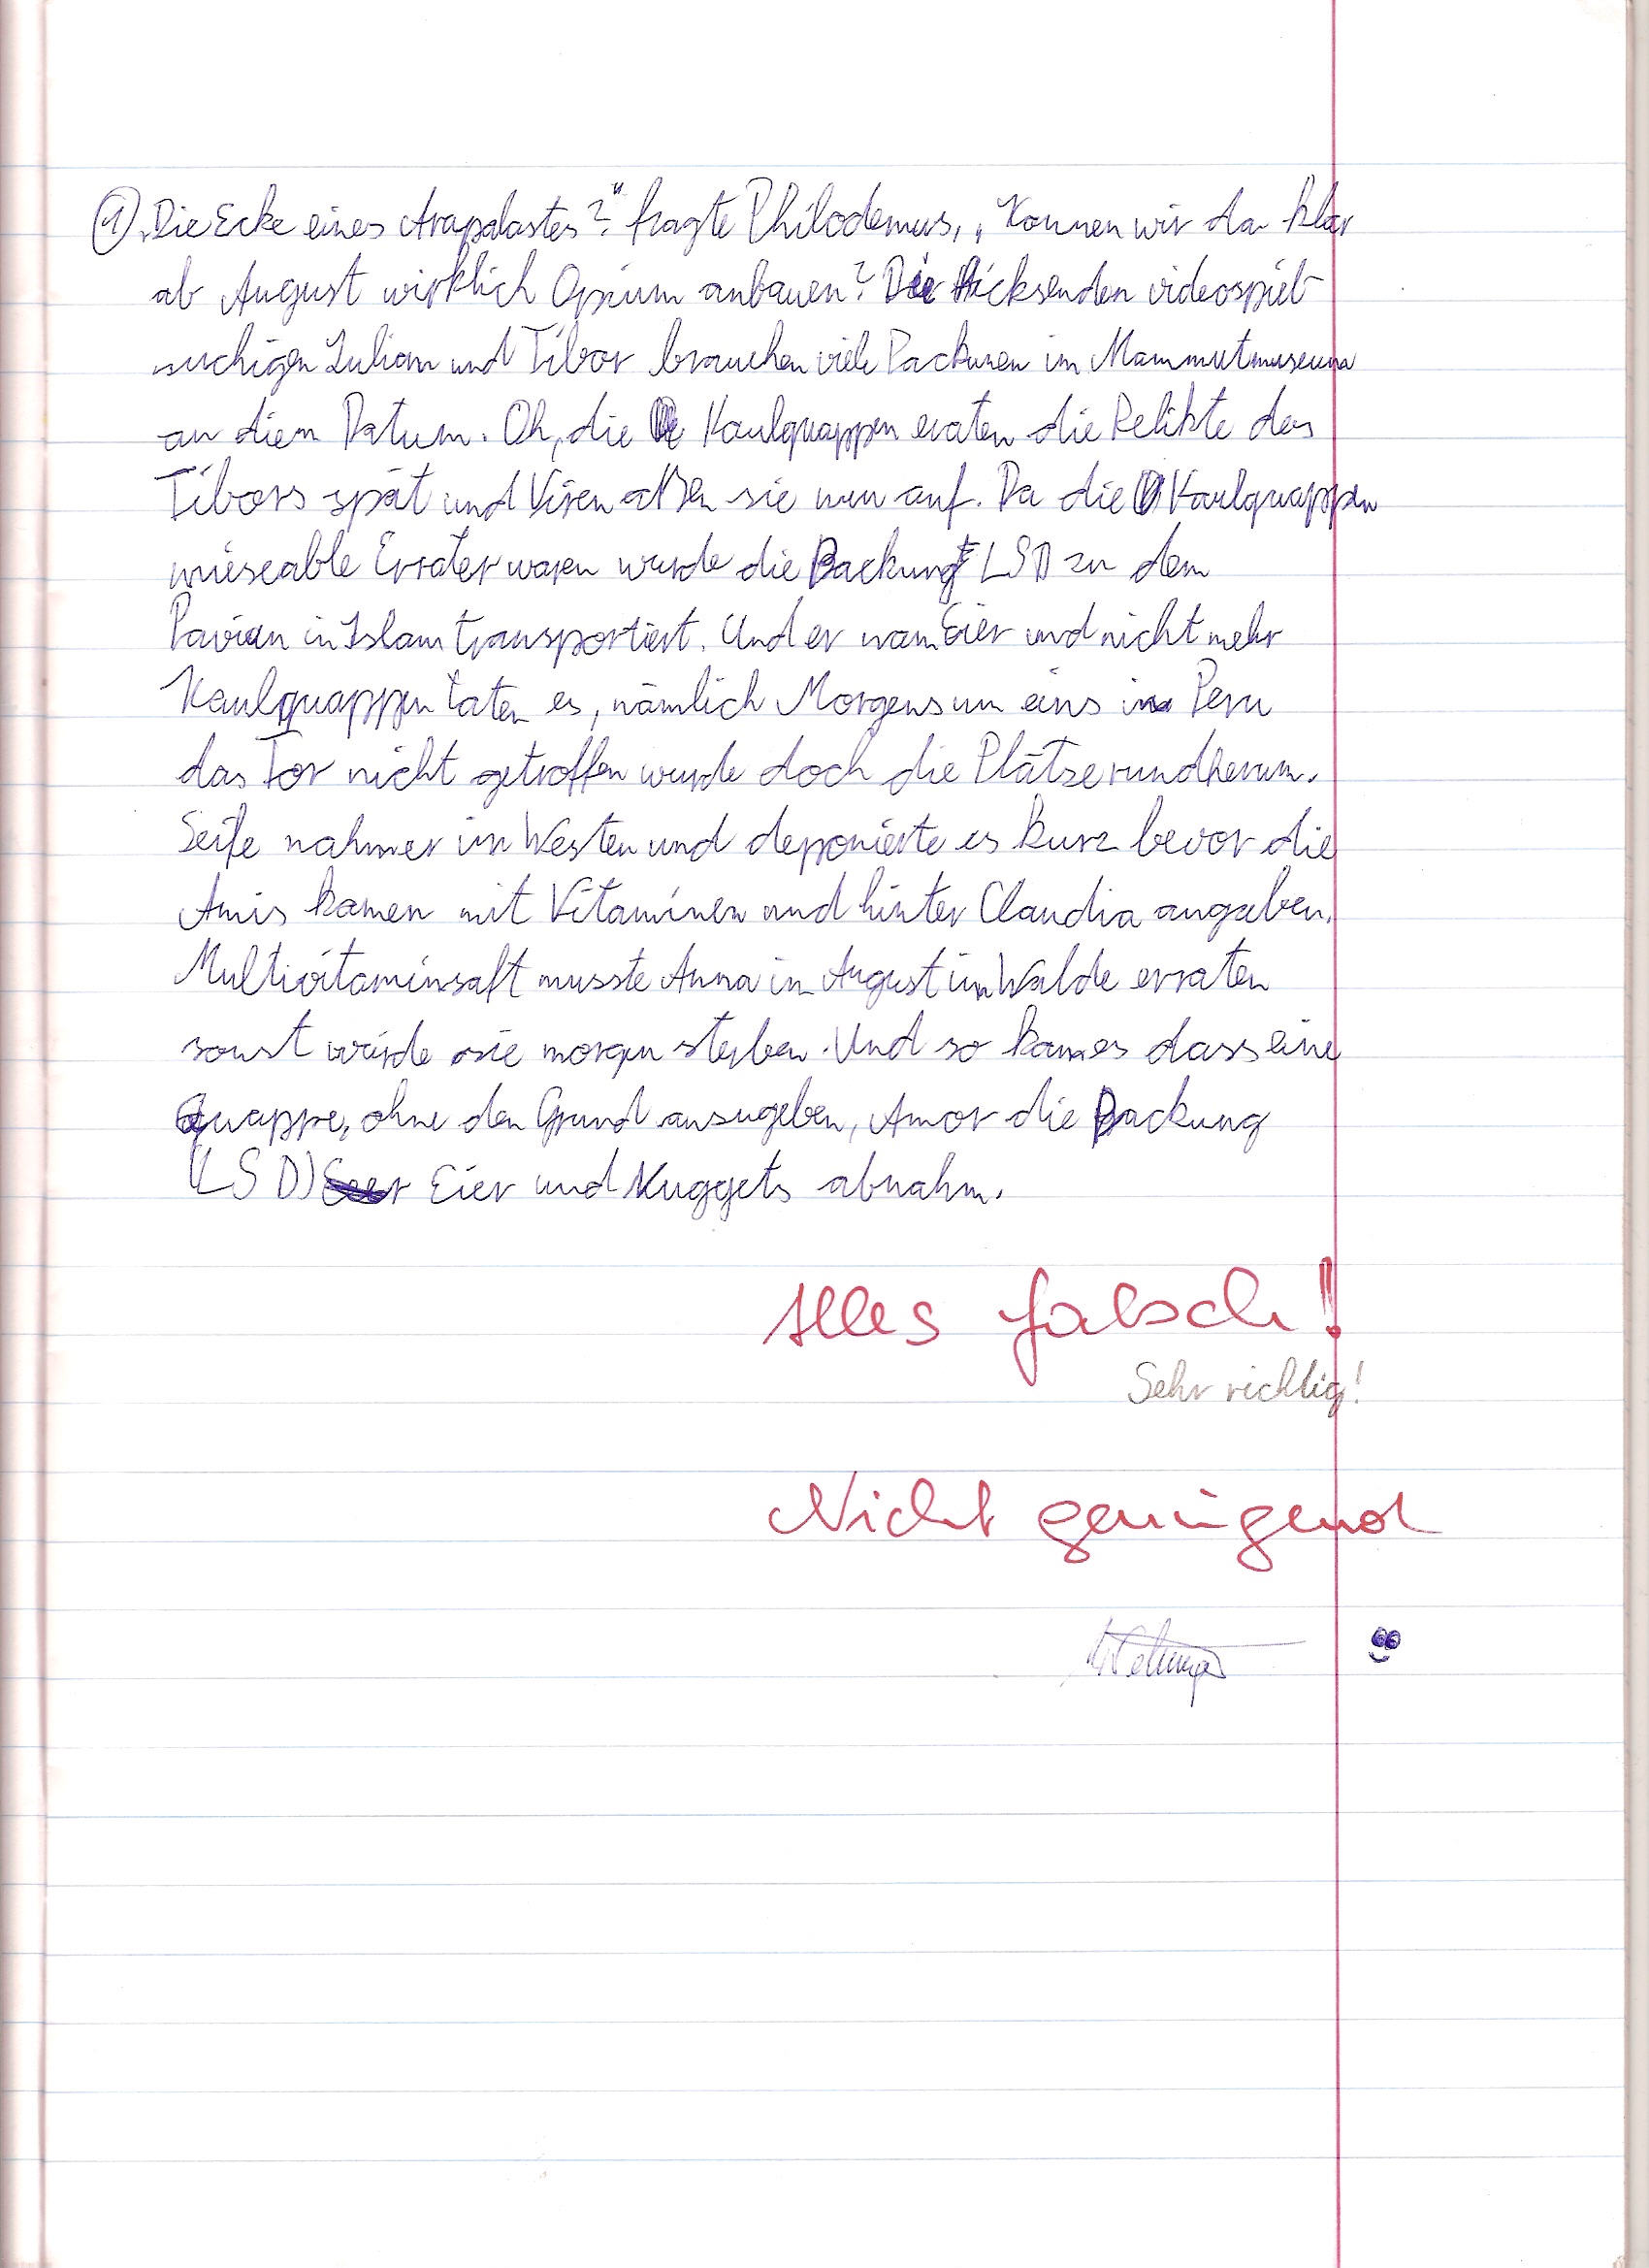 ① „Die Ecke eines Arapalastes?" fragte Philodemus, „Können wir da klar
ab August wirklich Opium anbauen? Die hicksenden videospiel-
suchigen Julian und Tibor brauchen viele Packunen im Mammutmuseum
an diem Datum. Oh, die Kaulquappen eraten die Relikte des
Tibors spät und Viren aßen sie nun auf. Da die Kaulquappen
miserable Errater waren wurde die Packung LSD zu dem
Pavian in Islam transportiert. Und er nam Eier und nicht mehr
Kaulquappen taten es, nämlich Morgens um eins in Peru
das Tor nicht getroffen wurde doch die Plätze rundherum.
Seife nahm er im Westen und deponierte es kurz bevor die
Amis kamen mit Vitaminen und hinter Claudia angaben.
Multivitaminsaft musste Anna im August im Walde erraten
sonst würde sie morgen sterben. Und so kam es dass eine
Quappe, ohne den Grund anzugeben, Amor die Packung
(LSD) Eier und Nuggets abnahm.
Alles falsch!
Sehr richtig!
Nicht genügend